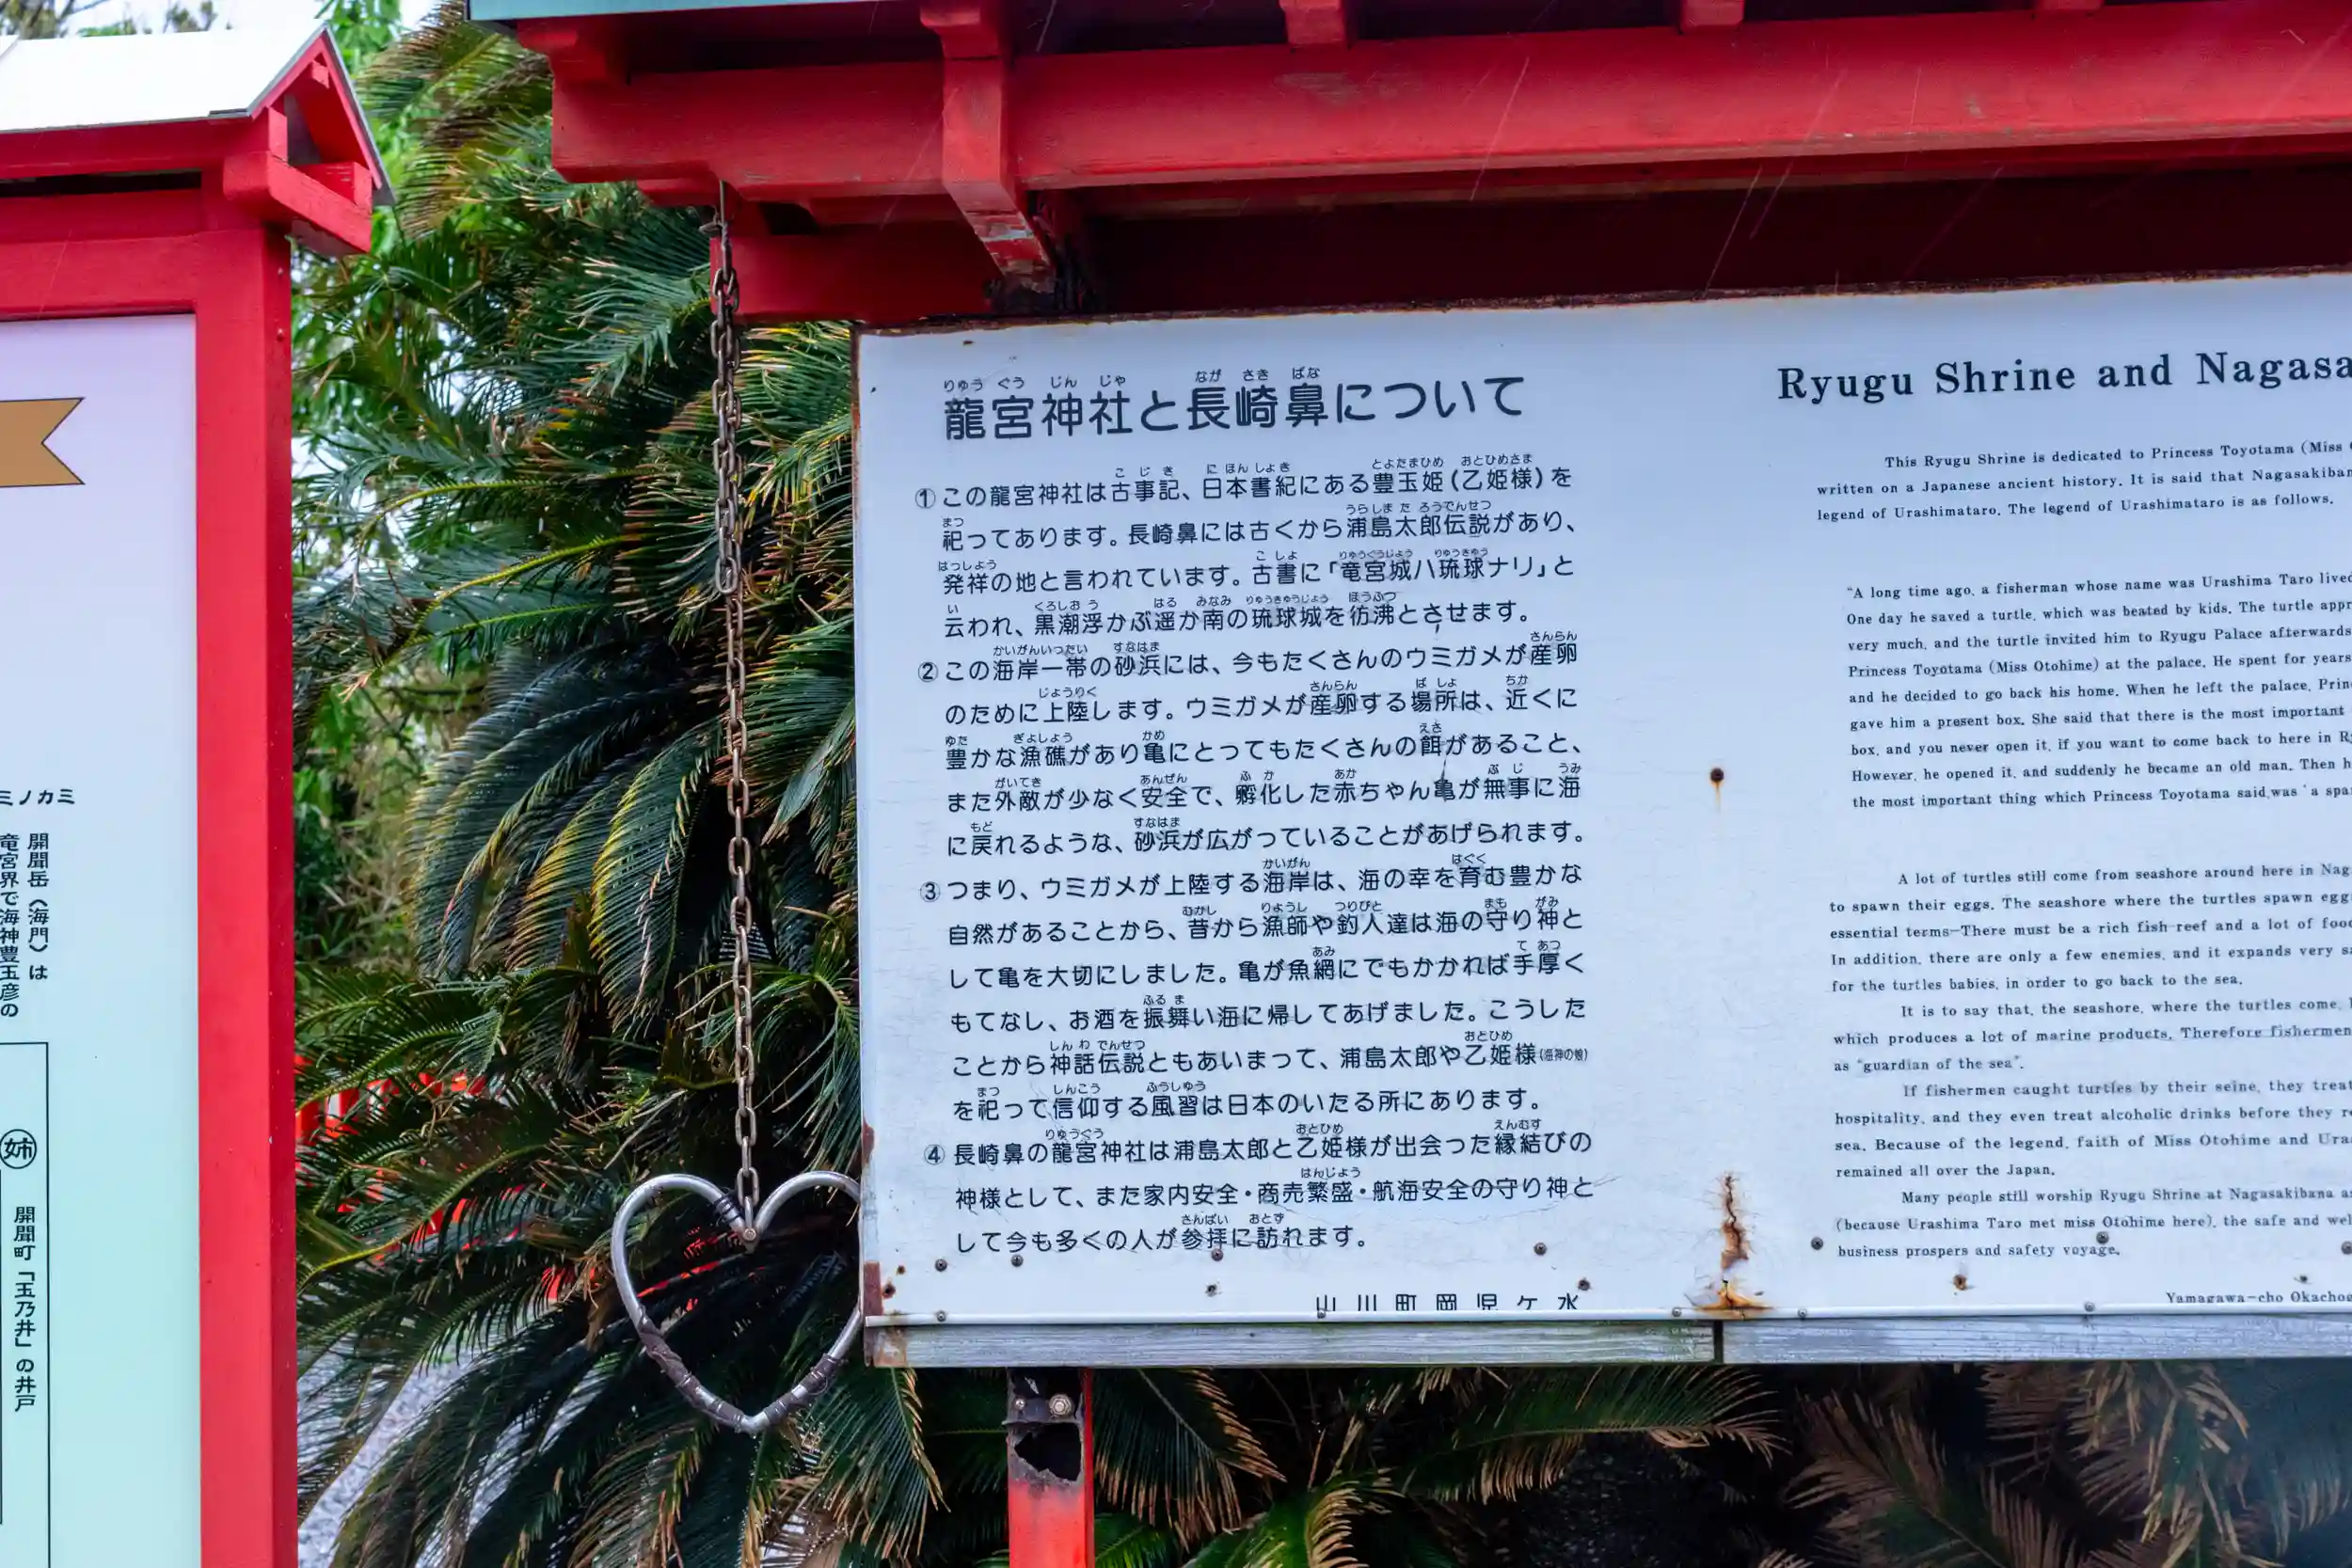 ミノカミ
開聞岳(海門)は
竜宮界で海神豊玉彦の
姉
開聞町「玉乃井」の井戸
龍宮神社と長崎鼻について
①この龍宮神社は古事記、日本書紀にある豊玉姫(乙姫様)を
祀ってあります。長崎鼻には古くから浦島太郎伝説があり、
発祥の地と言われています。古書に「竜宮城ハ琉球ナリ」と
云われ、黒潮浮かぶ遥か南の琉球城を彷沸とさせます。
②この海岸一帯の砂浜には、今もたくさんのウミガメが産卵
のために上陸します。ウミガメが産卵する場所は、近くに
豊かな漁礁があり亀にとってもたくさんの餌があること、
また外敵が少なく安全で、孵化した赤ちゃん亀が無事に海
に戻れるような、砂浜が広がっていることがあげられます。
③つまり、ウミガメが上陸する海岸は、海の幸を育む豊かな
自然があることから、昔から漁師や釣人達は海の守り神と
して亀を大切にしました。亀が魚網にでもかかれば手厚く
もてなし、お酒を振舞い海に帰してあげました。こうした
ことから神話伝説ともあいまって、浦島太郎や乙姫様(海神の娘)
を祀って信仰する風習は日本のいたる所にあります。
④長崎鼻の龍宮神社は浦島太郎と乙姫様が出会った縁結びの
神様として、また家内安全・商売繁盛・航海安全の守り神と
して今も多くの人が参拝に訪れます。
山川町岡児ケ水
Ryugu Shrine and Nagasa
This Ryugu Shrine is dedicated to Princess Toyotama (Miss
written on a Japanese ancient history. It is said that Nagasakiban
legend of Urashimataro. The legend of Urashimataro is as follows.
"A long time ago, a fisherman whose name was Urashima Taro lived
One day he saved a turtle, which was beated by kids. The turtle appr
very much, and the turtle invited him to Ryugu Palace afterwards
Princess Toyotama (Miss Otohime) at the palace. He spent for years
and he decided to go back his home. When he left the palace, Prin
gave him a present box. She said that there is the most important
box, and you never open it, if you want to come back to here in R
However, he opened it, and suddenly he became an old man. Then h
the most important thing which Princess Toyotama said was 'a spa
A lot of turtles still come from seashore around here in Nag
to spawn their eggs. The seashore where the turtles spawn egg
essential terms—There must be a rich fish-reef and a lot of foo
In addition, there are only a few enemies, and it expands very s
for the turtles babies, in order to go back to the sea.
It is to say that, the seashore, where the turtles come,
which produces a lot of marine products. Therefore fishermen
as "guardian of the sea".
If fishermen caught turtles by their seine, they treat
hospitality, and they even treat alcoholic drinks before they r
sea. Because of the legend, faith of Miss Otohime and Ura
remained all over the Japan.
Many people still worship Ryugu Shrine at Nagasakibana a
(because Urashima Taro met miss Otohime here), the safe and wel
business prospers and safety voyage.
Yamagawa-cho Okachog